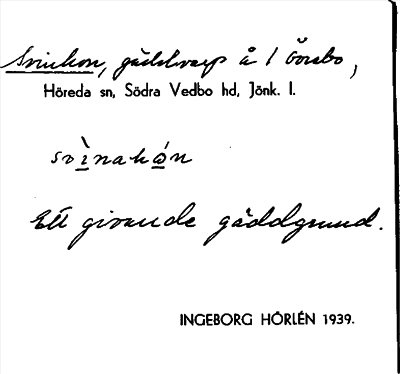 Svinhon, gäddvarp å 1 Göusbo,
Höreda sn, Södra Vedbo hd, Jönk. l.
svìnahón
Ett givande gäddgrund.
INGEBORG HÖRLÉN 1939.